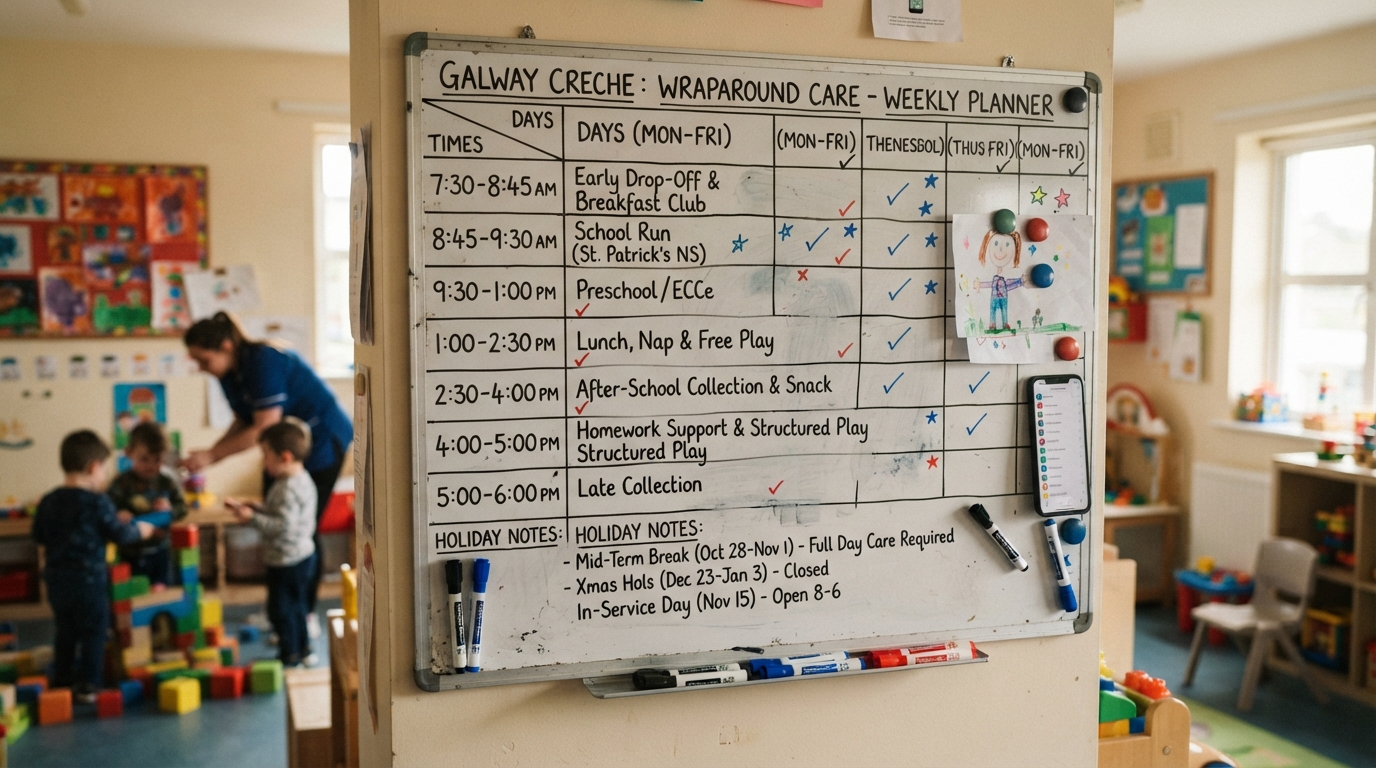 GALWAY CRECHE: WRAPAROUND CARE - WEEKLY PLANNER
DAYS
TIMES
DAYS (MON-FRI)
(MON-FRI)
THENESBOL)
(THUS FRI)
(MON-FRI)
7:30-8:45 AM
Early Drop-Off &
Breakfast Club
8:45-9:30 AM
School Run
(St. Patrick's NS)
9:30-1:00 PM
Preschool/ECCe
1:00-2:30 PM
Lunch, Nap & Free Play
2:30-4:00 PM
After-School Collection & Snack
4:00-5:00 PM
Homework Support & Structured Play
Structured Play
5:00-6:00 PM
Late Collection
HOLIDAY NOTES:
HOLIDAY NOTES:
- Mid-Term Break (Oct 28-Nov 1) - Full Day Care Required
- Xmas Hols (Dec 23-Jan 3) - Closed
In-Service Day (Nov 15) - Open 8-6